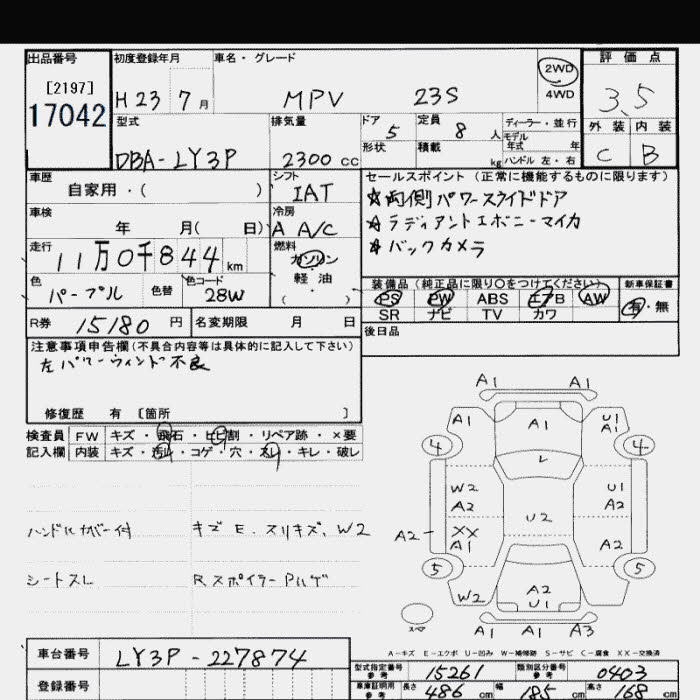 出品番号 初度登録年月 車名・グレード 評価点
[2197] 17042
H23 7月 MPV 23S 2WD 4WD 3.5
型式 排気量 ドア 5 定員 8人 ディーラー・並行 外装 内装
形状 積載 kg モデル年式 年 ハンドル 左・右
DBA-LY3P 2300cc C B
車歴 シフト セールスポイント (正常に機能するものに限ります)
自家用・( ) IAT ☆両側パワースライドドア
車検 冷房 ☆ラディアントエボニーマイカ
年 月( 日) A A/C ☆バックカメラ
走行 燃料
11万0千844km ガソリン
軽・油
( )
色 色替 色コード 装備品(純正品に限り○をつけてください) 新車保証書
パープル 28W PS PW ABS エアB AW 有・無
SR ナビ TV カワ
R券 15180円 名変期限 月 日 後日品
注意事項申告欄(不具合内容等は具体的に記入して下さい)
左パワーウィンドー不良
修復歴 有 [箇所 ]
検査員 FW キズ・飛石・ヒビ割・リペア跡・×要
記入欄 内装 キズ・汚れ・コゲ・穴・スレ・キレ・破レ
ハンドルカバー付 キズE.スリキズ、W2
シートスレ RスポイラーPハゲ
A1 A1
A1 A1 U1 A1
4 4
L
W2 A2 U1 A2
U2
A2 XX A1 A2
5 5
W2 A2 U1
スペア A1 A1 A3
A-キズ E-エクボ U-凹み W-補修跡 S-サビ C-腐食 XX-交換済
車台番号 LY3P-227874
登録番号
型式指定番号 参考 15261 類別区分番号 参考 0403
車庫証明用 参考 長さ 486cm 幅 185cm 高さ 168cm